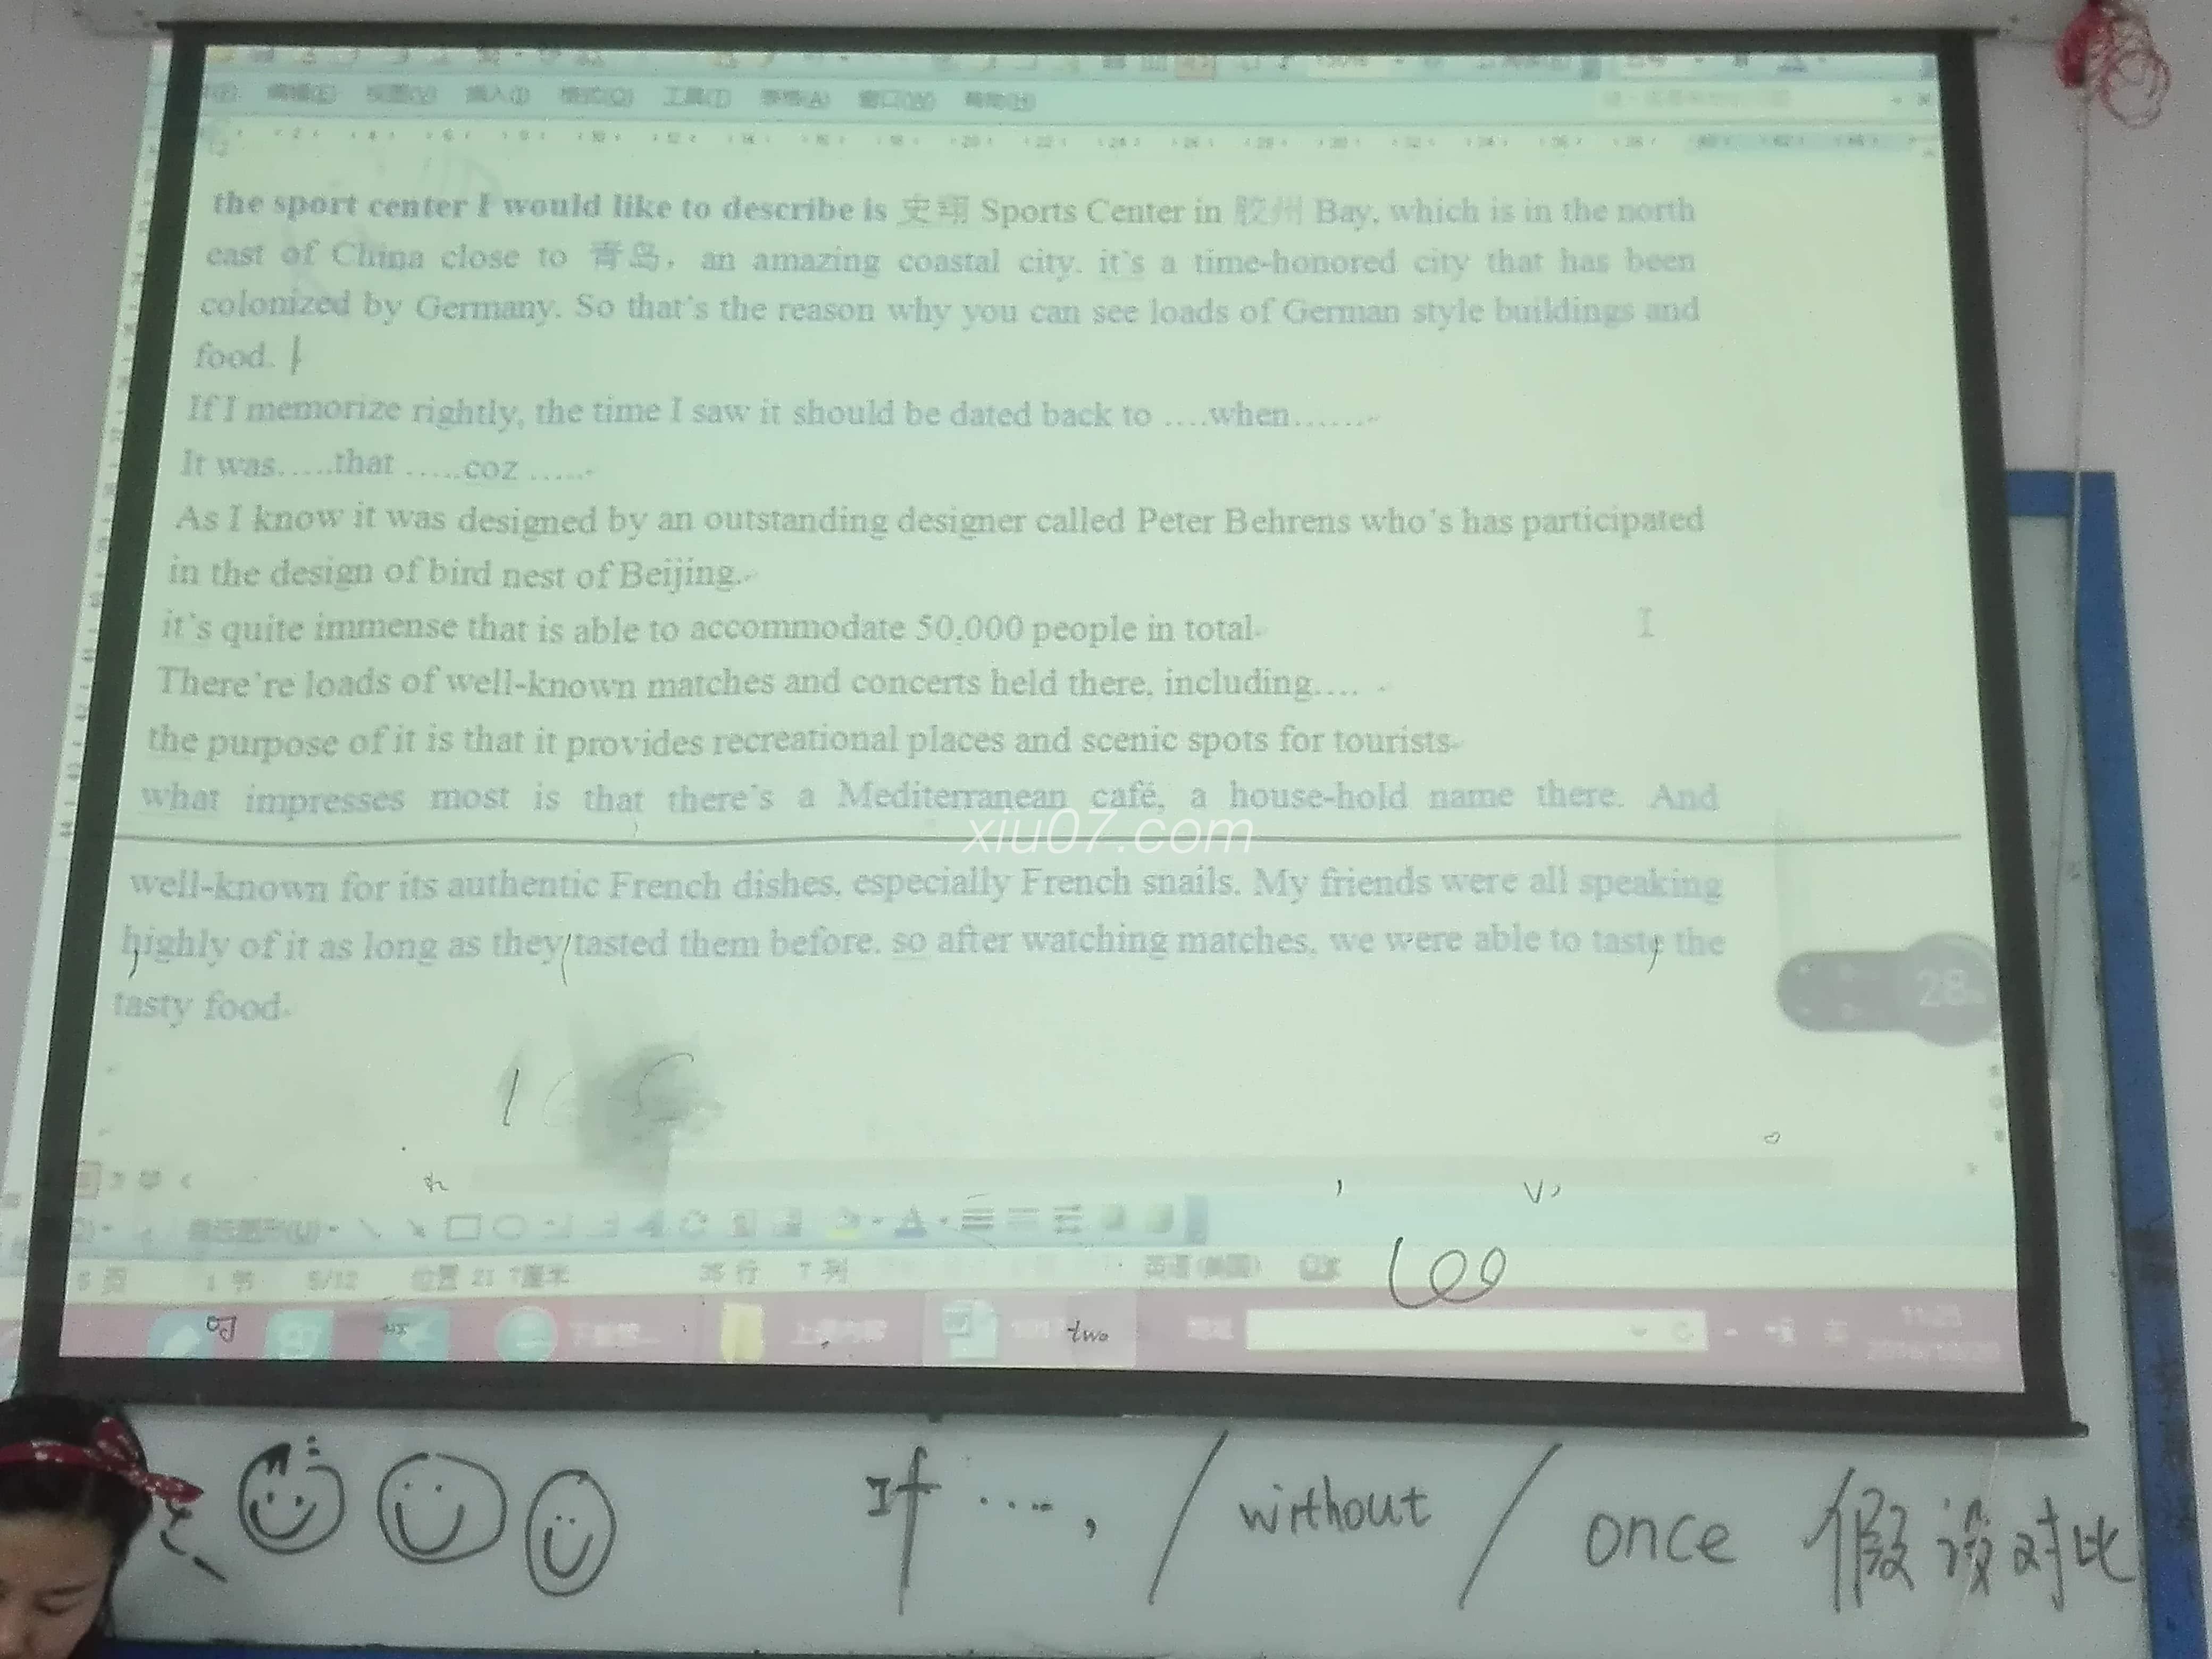 the sport center I would like to describe is 史翔 Sports Center in 胶州 Bay, which is in the north
east of China close to 青岛, an amazing coastal city. it's a time-honored city that has been
colonized by Germany. So that's the reason why you can see loads of German style buildings and
food.
If I memorize rightly, the time I saw it should be dated back to ....when.......
It was.....that ......coz ......
As I know it was designed by an outstanding designer called Peter Behrens who's has participated
in the design of bird nest of Beijing.
it's quite immense that is able to accommodate 50,000 people in total
There're loads of well-known matches and concerts held there, including....
the purpose of it is that it provides recreational places and scenic spots for tourists
what impresses most is that there's a Mediterranean café, a house-hold name there. And
xiu07.com
well-known for its authentic French dishes, especially French snails. My friends were all speaking
highly of it as long as they tasted them before. so after watching matches, we were able to taste the
tasty food
28
5/12
two
If ...., / without / once 假设对比